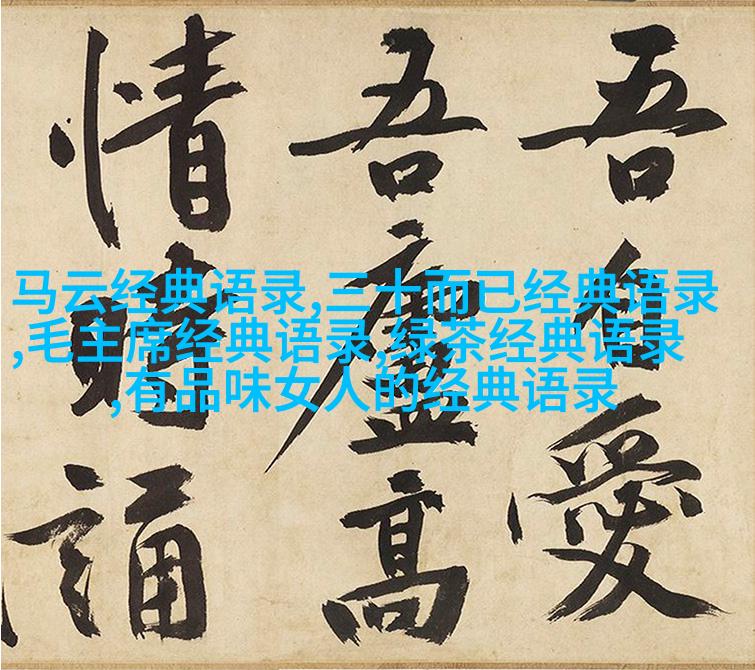 吾自愛
吾廬高
情誦
马云经典语录,三十而已经典语录
,毛主席经典语录,绿茶经典语录
,有品味女人的经典语录